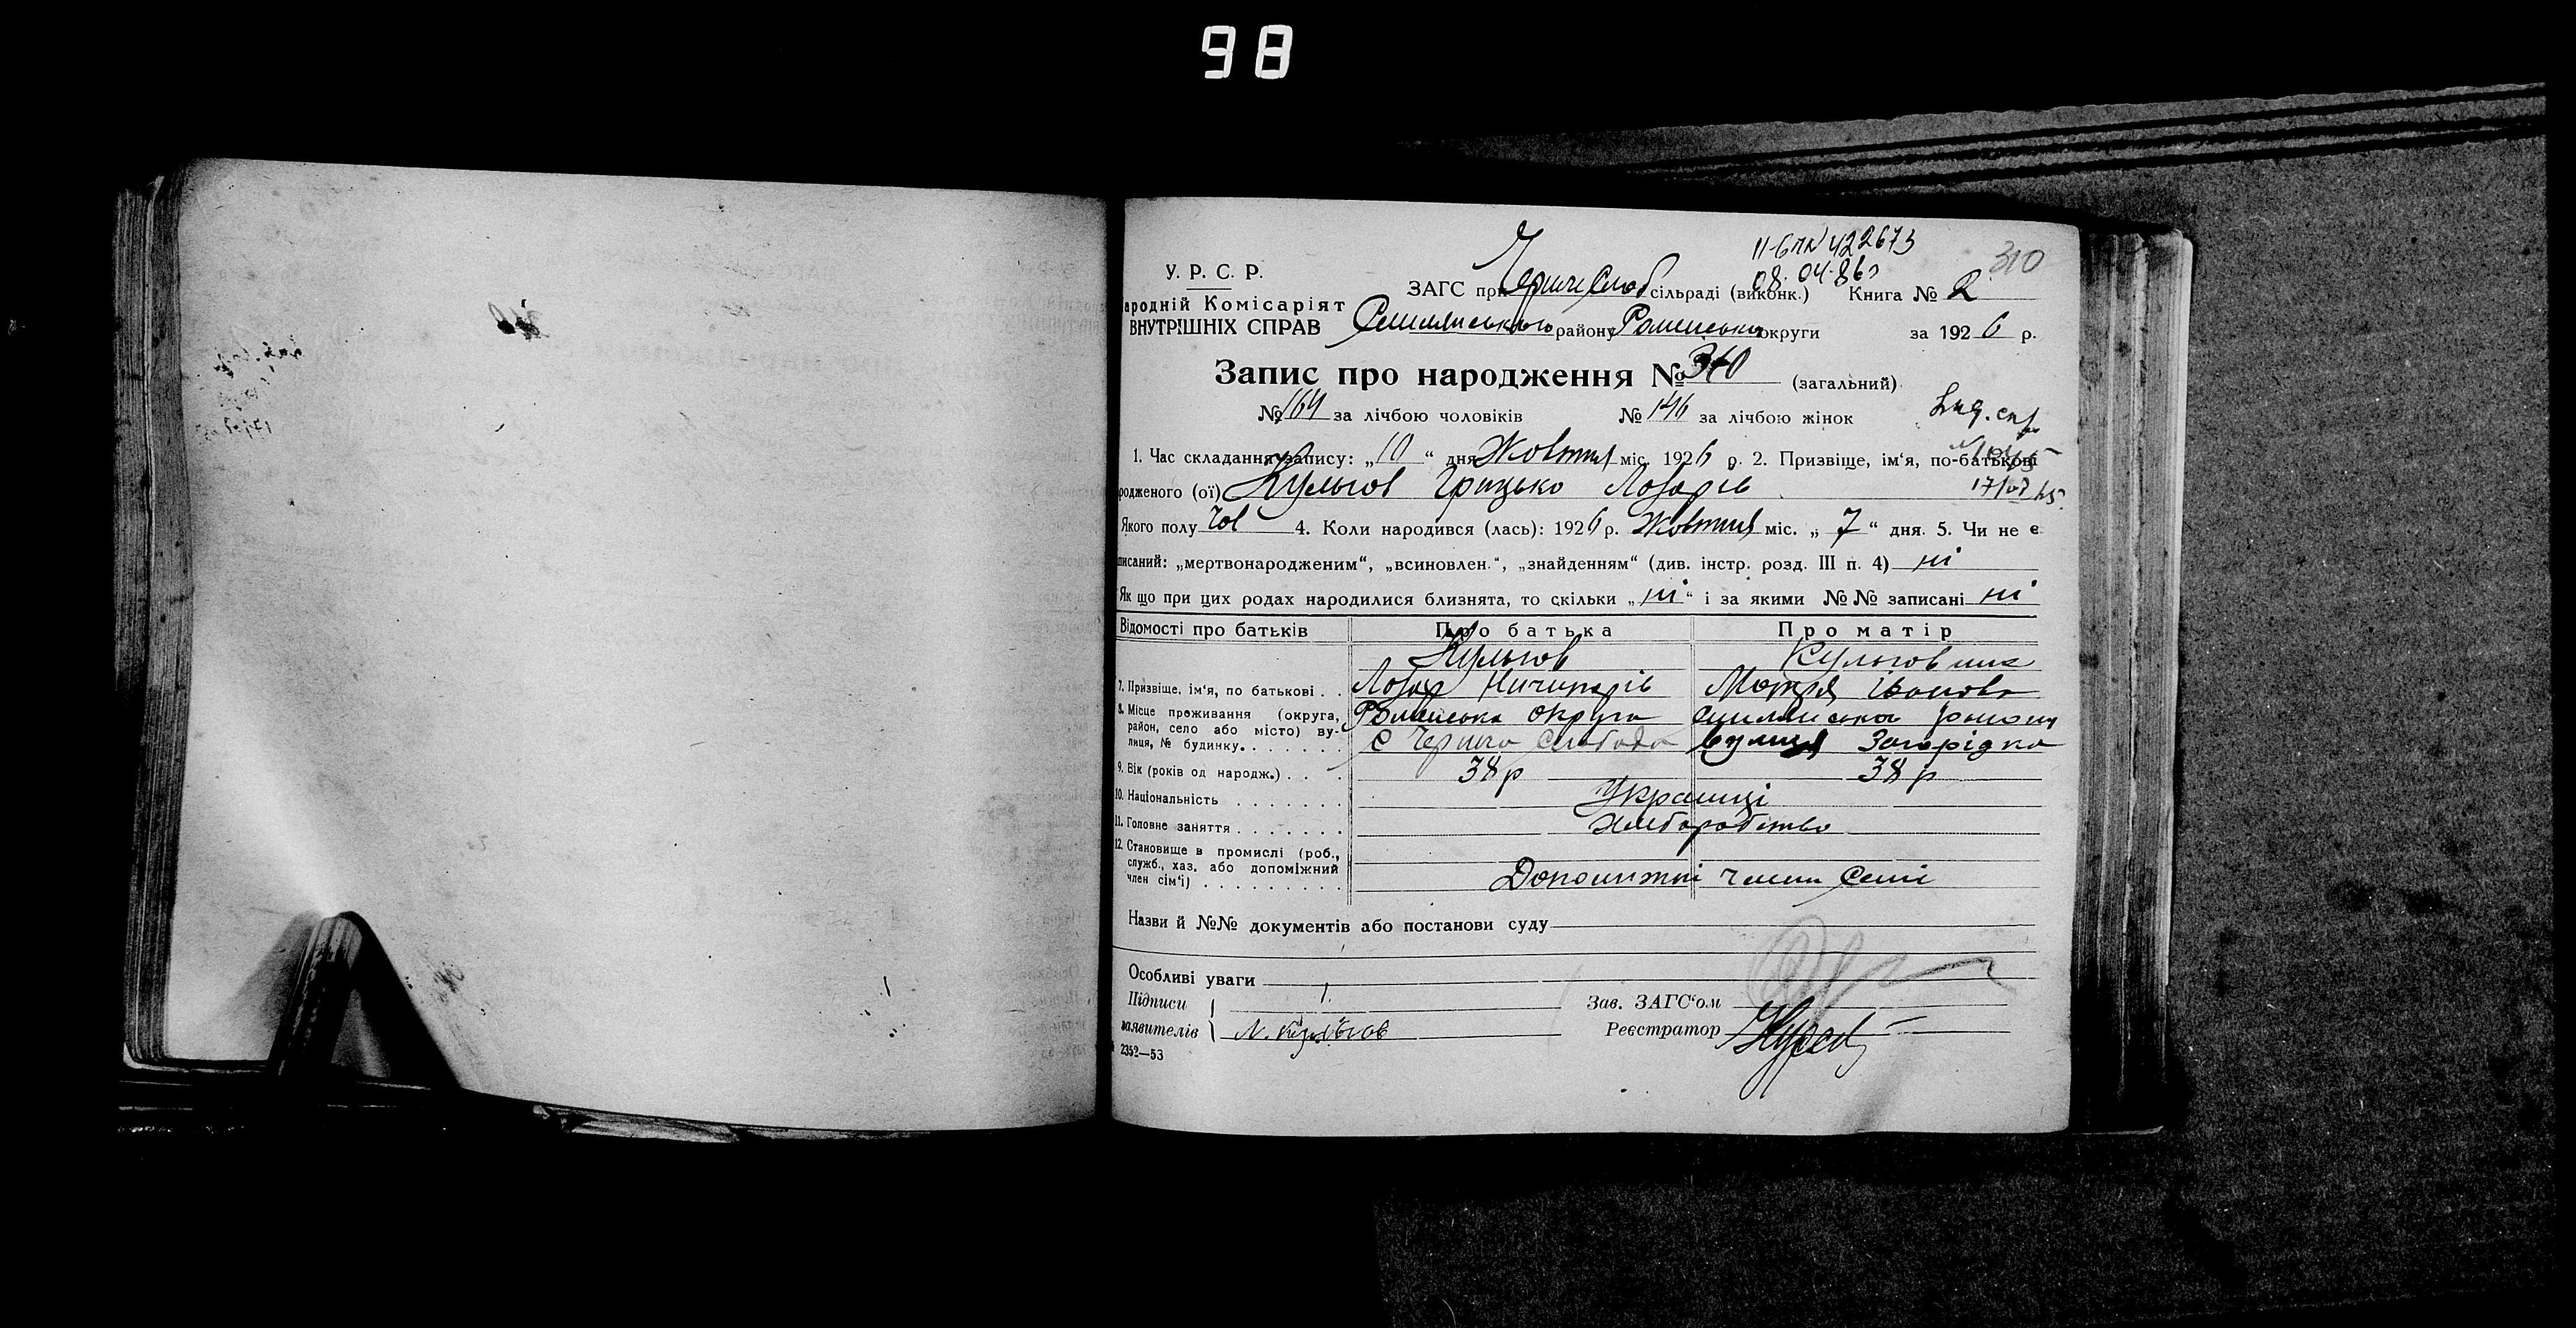 98
310
У. Р. С. Р.
ародній Комісаріят
ВНУТРІШНІХ СПРАВ
08.04.86
ЗАГС при сільраді (виконк.) Книга № 2
району Роменської округи за 1926 р.
Запис про народження № 310 (загальний)
№ 164 за лічбою чоловіків № 146 за лічбою жінок
1. Час складання запису: „10“ дня Жовтня міс. 1926 р. 2. Призвіще, ім‘я, по-батькові
родженого (ої) Кульгов Грицько Лазарів
Якого полу чол 4. Коли народився (лась): 1926 р. Жовтня міс. „7“ дня. 5. Чи не є
писаний: „мертвонародженим“, „всиновлен.“, „знайденням“ (див. інстр. розд. III п. 4) ні
Як що при цих родах народилися близнята, то скільки „ні“ і за якими №№ записані ні
Відомості про батьків Про батька Про матір
Кульгов
7. Призвіще, ім‘я, по батькові . . Лазар Ничипорів Мотря Іванова
8. Місце проживання (округа, район, село або місто) вулиця, № будинку . . . . . . Роменська округа району
с Черніча Слобода вулиця Загорідка
9. Вік (років од народж.) . . . 38 р 38 р
10. Національність . . . . . . . Українці
11. Головне заняття . . . . . . . Хліборобство
12. Становище в промислі (роб., служб., хаз. або допоміжний член сім‘ї) . . . . . . . . . Допоміжні члени семії
Назви й №№ документів або постанови суду
Особливі уваги
Підписи 1.
заявителів Л. Кульгов
Зав. ЗАГС‘ом
Реєстратор
2352—53